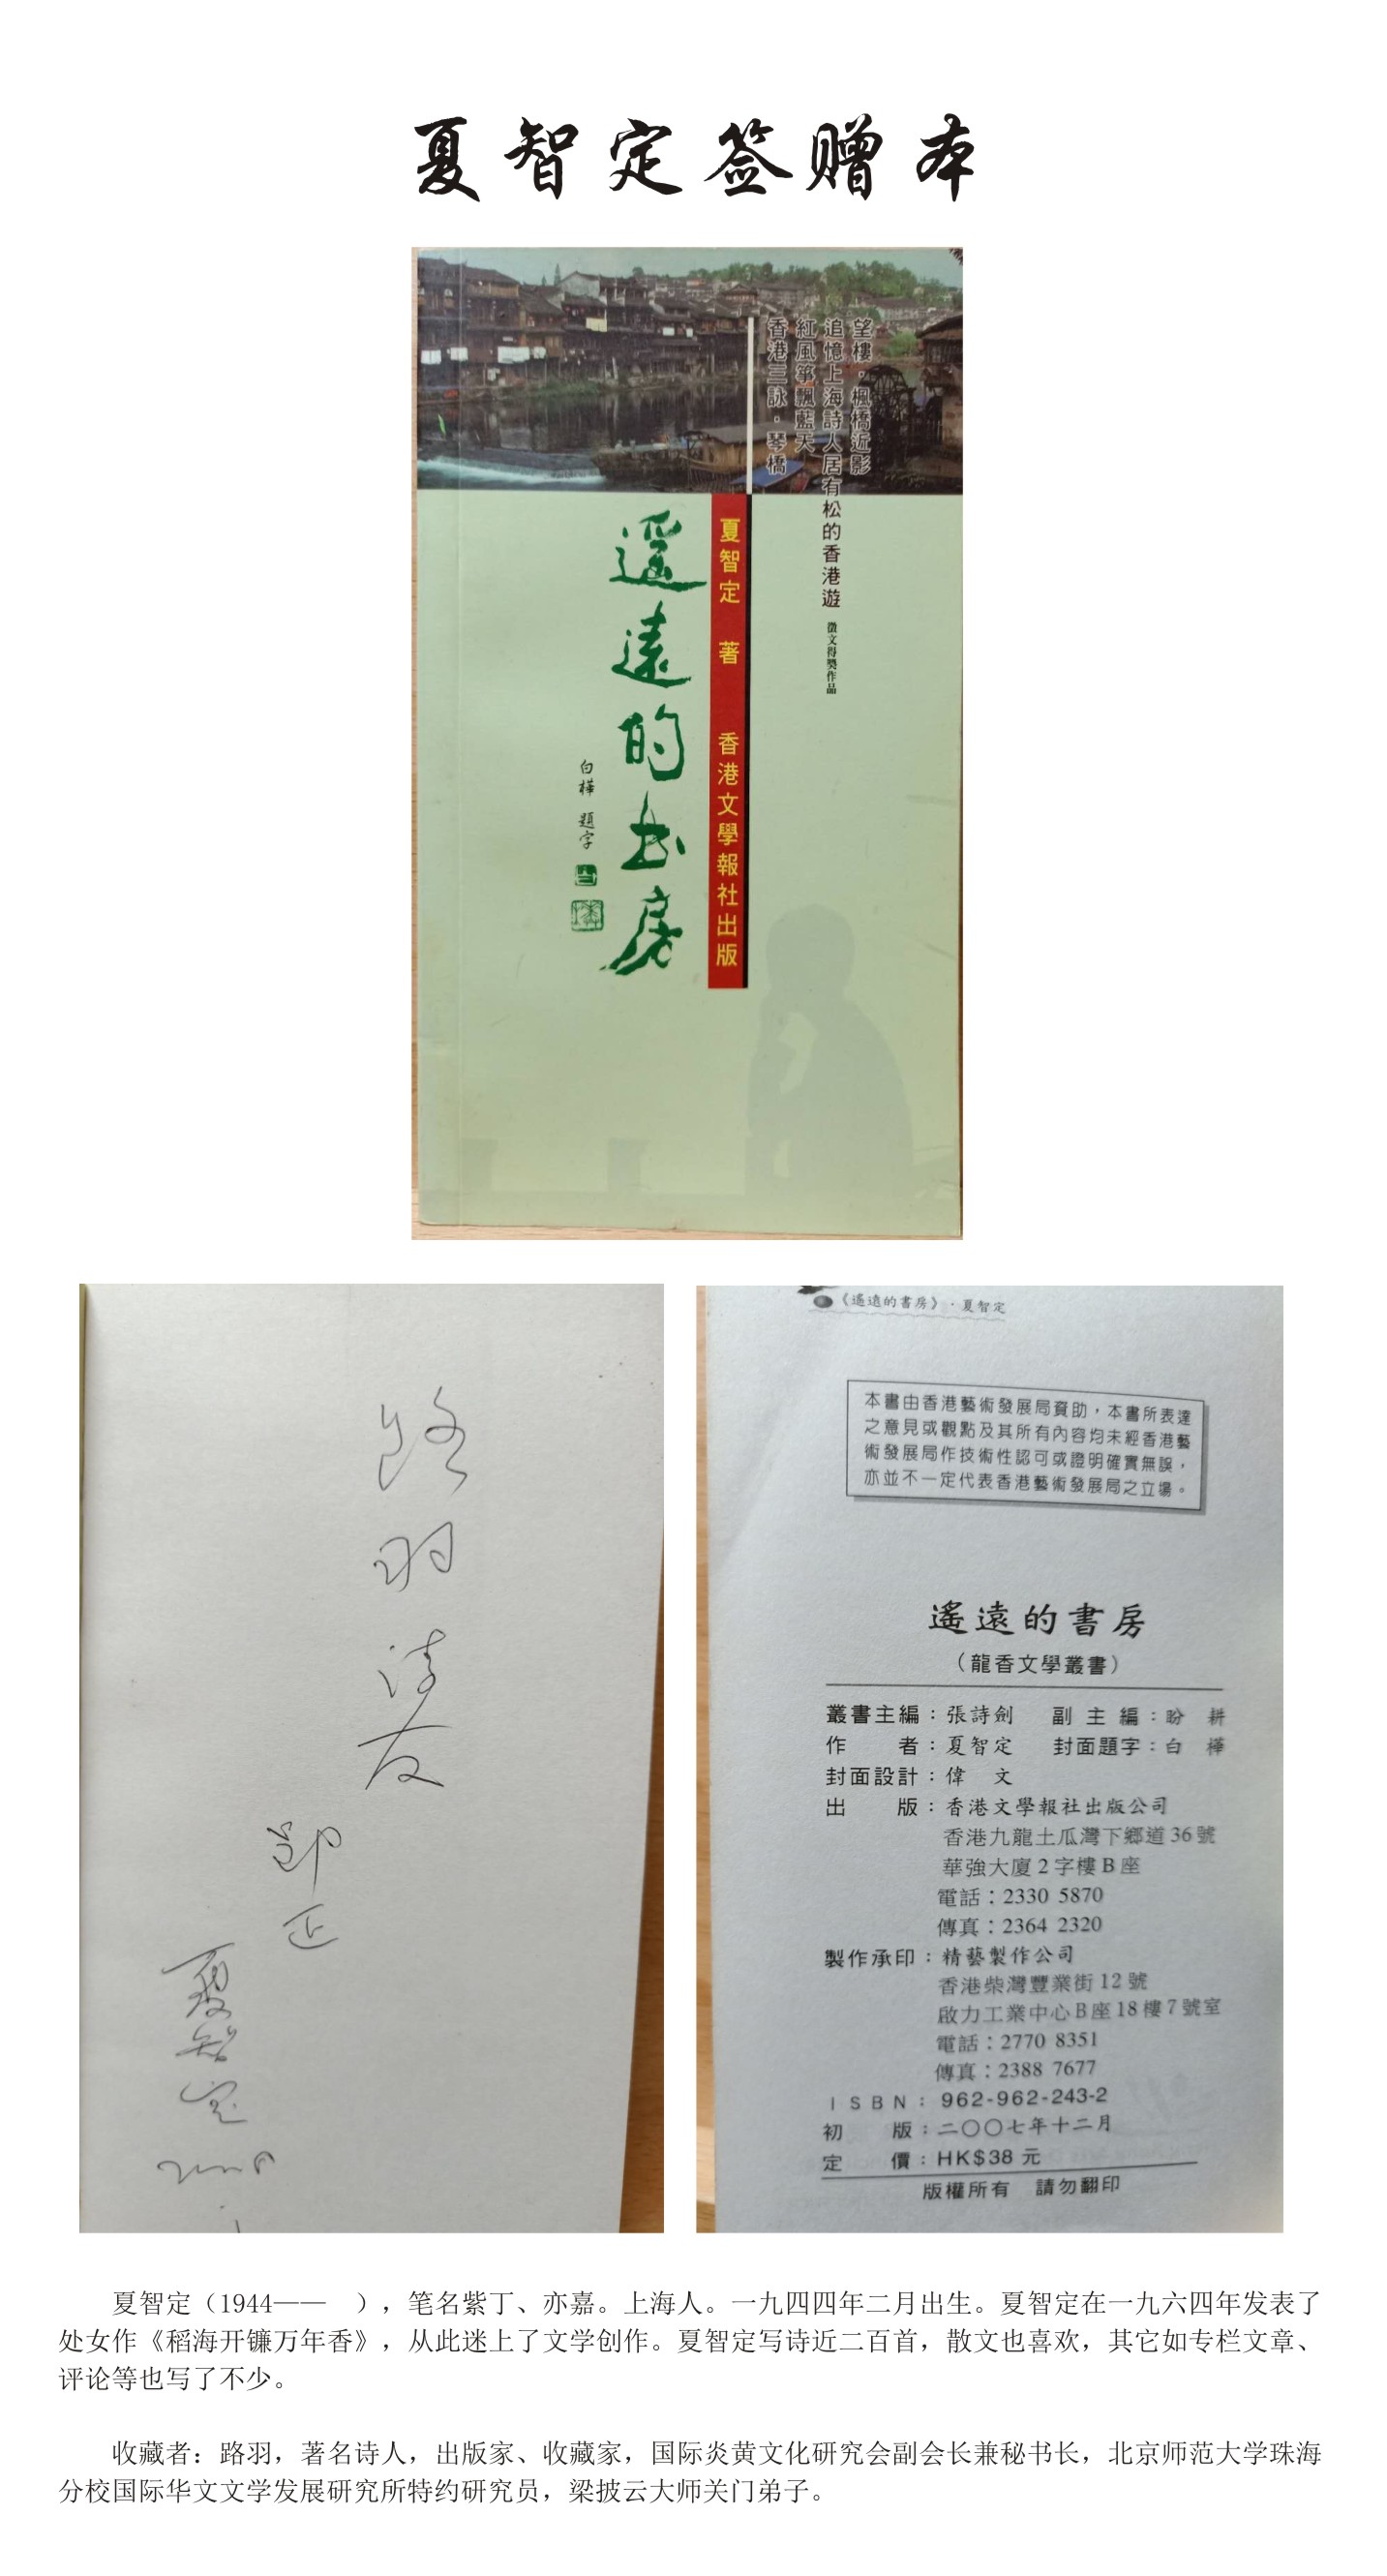 夏智定签赠本
望樓．楓橋近影
追憶上海詩人居有松的香港遊 徵文得獎作品
紅風箏飄藍天
香港三詠．琴橋
夏智定 著 香港文學報社出版
遥遠的书房
白樺 題字
路羽诗友
郢正
夏智定
2008
《遙遠的書房》·夏智定
本書由香港藝術發展局資助，本書所表達
之意見或觀點及其所有內容均未經香港藝
術發展局作技術性認可或證明確實無誤，
亦並不一定代表香港藝術發展局之立場。
遙遠的書房
（龍香文學叢書）
叢書主編：張詩劍 副主編：盼耕
作者：夏智定 封面題字：白樺
封面設計：偉文
出版：香港文學報社出版公司
香港九龍土瓜灣下鄉道36號
華強大廈2字樓B座
電話：2330 5870
傳真：2364 2320
製作承印：精藝製作公司
香港柴灣豐業街12號
啟力工業中心B座18樓7號室
電話：2770 8351
傳真：2388 7677
ISBN：962-962-243-2
初版：二〇〇七年十二月
定價：HK$38元
版權所有 請勿翻印
夏智定（1944—— ），笔名紫丁、亦嘉。上海人。一九四四年二月出生。夏智定在一九六四年发表了
处女作《稻海开镰万年香》，从此迷上了文学创作。夏智定写诗近二百首，散文也喜欢，其它如专栏文章、
评论等也写了不少。
收藏者：路羽，著名诗人，出版家、收藏家，国际炎黄文化研究会副会长兼秘书长，北京师范大学珠海
分校国际华文文学发展研究所特约研究员，梁披云大师关门弟子。